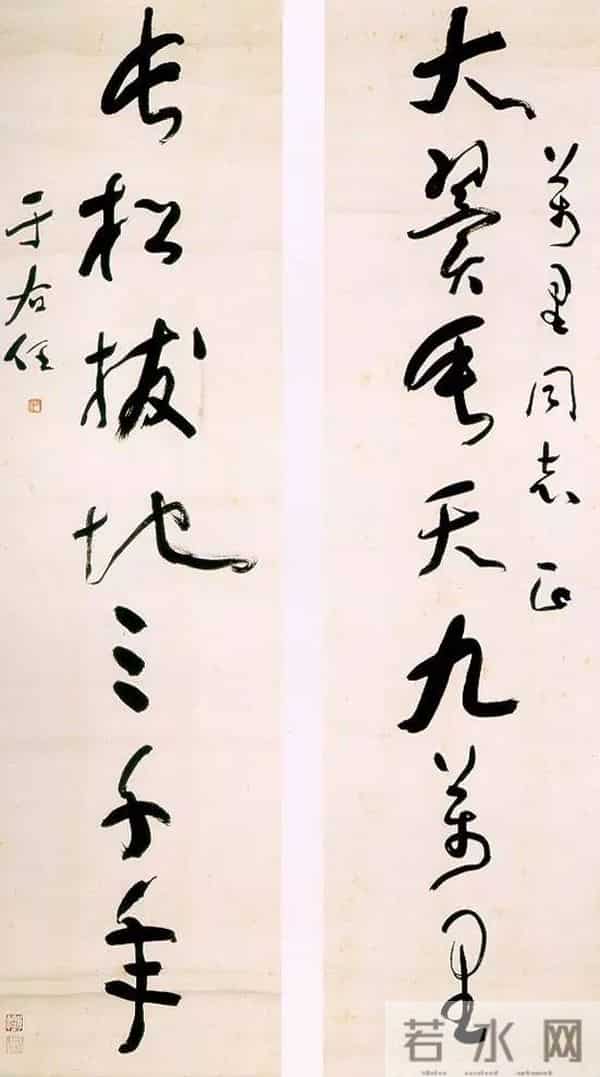 萬里同志 正
大翼垂天九萬里
長松拔地三千年
于右任
若水网